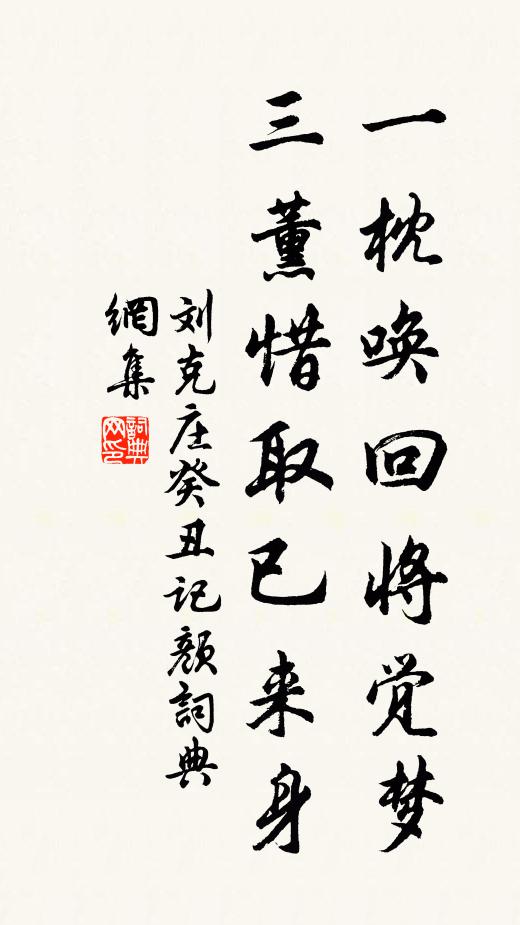 一枕唤回将觉梦
三薰惜取已来身
刘克庄癸丑记颜詞典
網集
詞典
网印